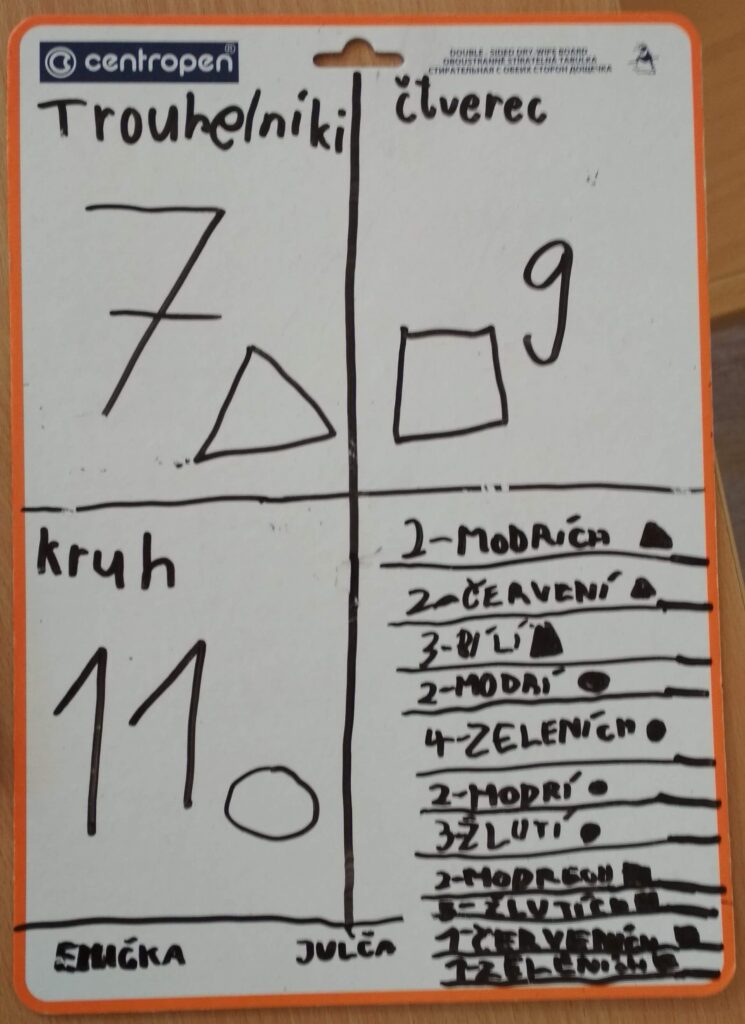 centropen®
DOUBLE - SIDED DRY-WIPE BOARD
OBOUSTRANNĚ STÍRATELNÁ TABULKA
СТИРАТЕЛЬНАЯ С ОБЕИХ СТОРОН ДОЩЕЧКА
Trouhelníki
7
čtverec
9
kruh
11
2-MODRÍCH
2-ČERVENÍ
3-BÍLÍ
2-MODRÍ
4-ZELENÍCH
2-MODRÍ
3ŽLUTÍ
2-MODRECH
3-ŽLUTÍCH
1-ČERVENÍCH
1-ZELENÍCH
EMIČKA
JULČA